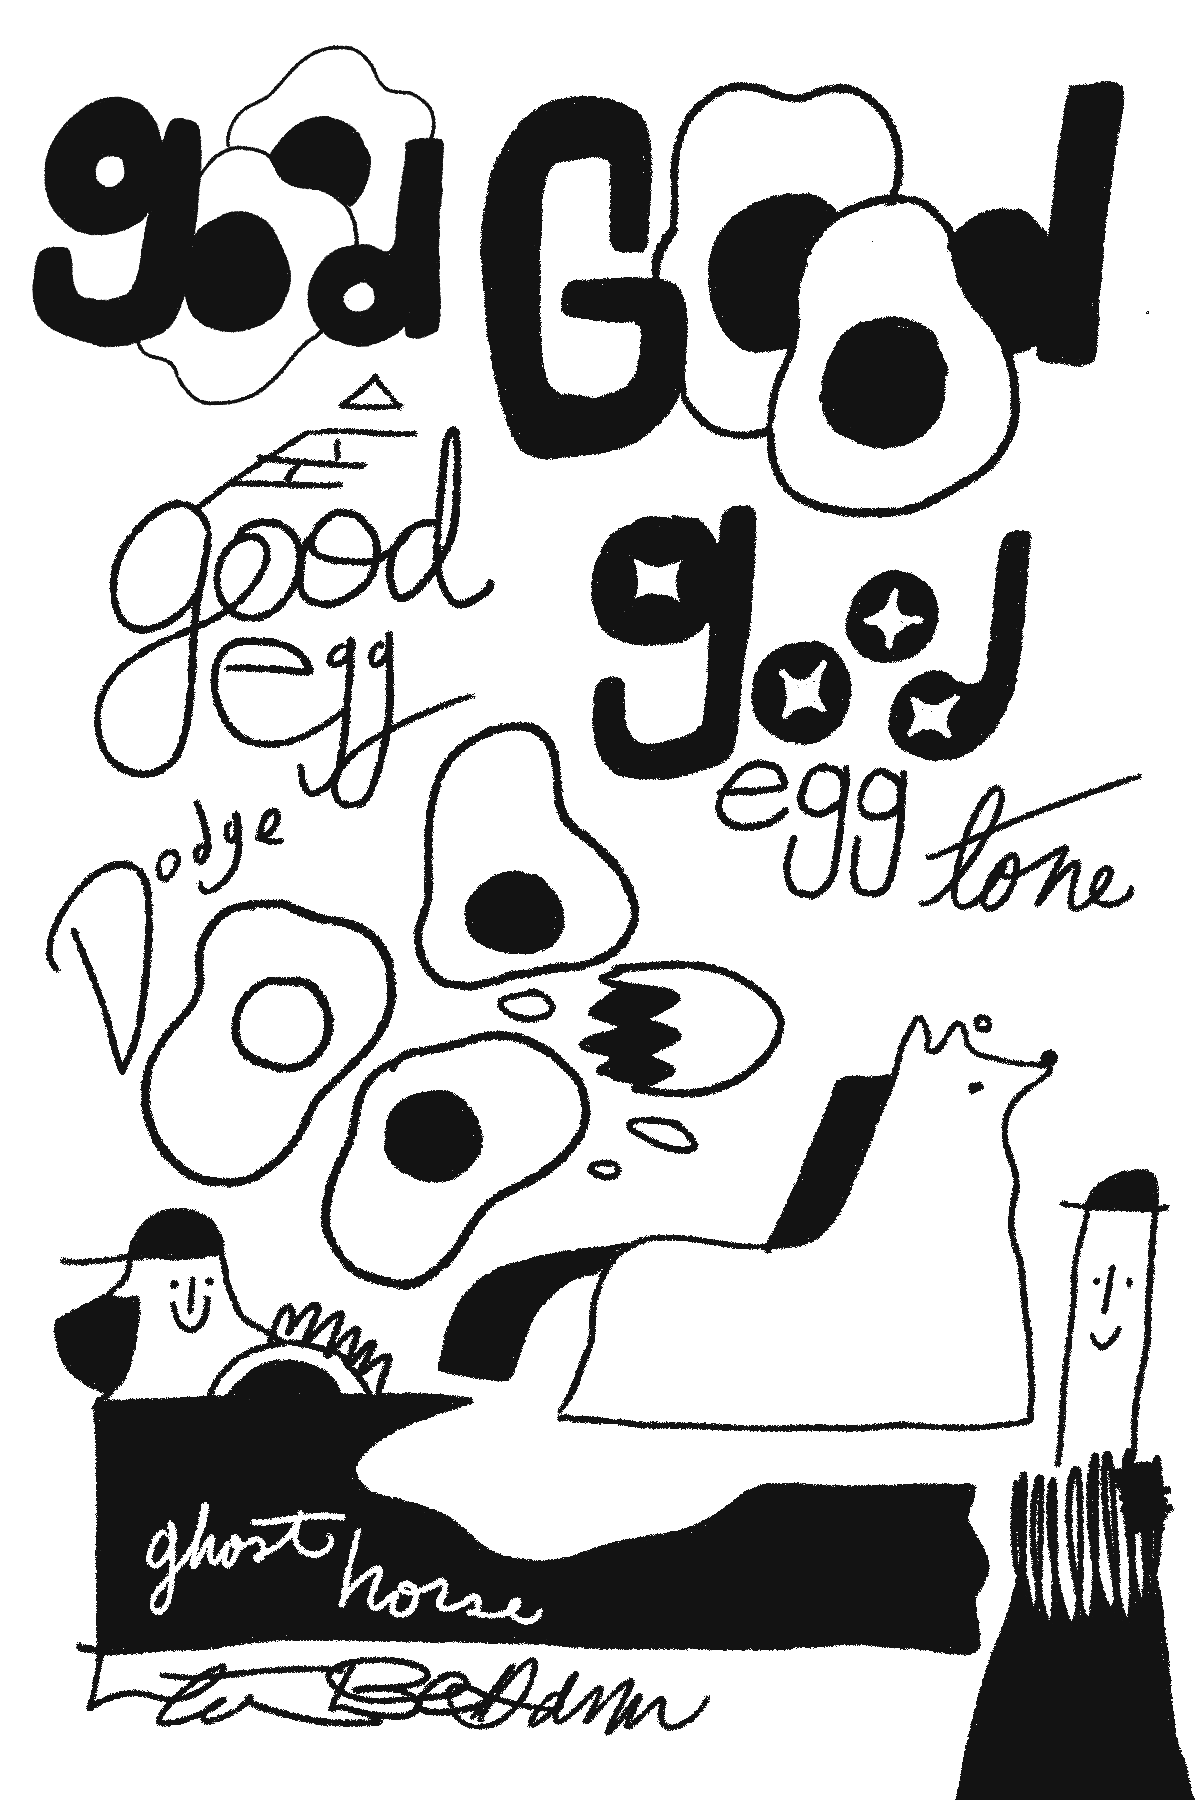 good Good
good
egg
good
egg tone
Dodge
ghost
horse